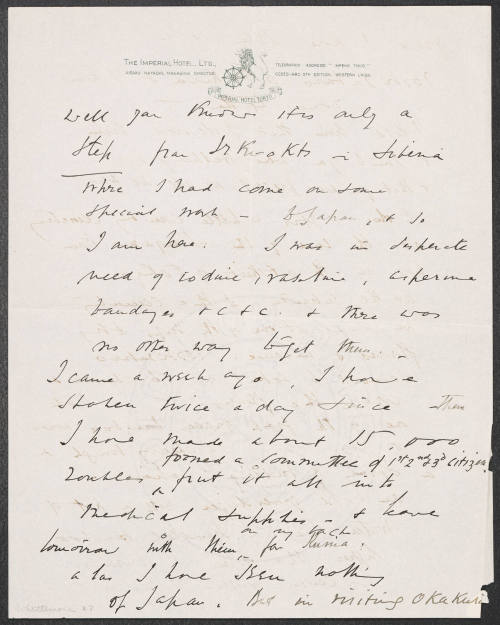 THE IMPERIAL HOTEL, LTD.,
AISAKU HAYASHI, MANAGING DIRECTOR.
TELEGRAPHIC ADDRESS "IMPEHO TOKIO"
CODES-ABC 5TH EDITION, WESTERN UNION.
IMPERIAL HOTEL TOKYO
Well you know it is only a
Step from Irkoskts in Siberia
where I had come on some
special work - to Japan, & so
I am here. I was in desperate
need of iodine, vaseline, asperine
bandages &c &c. & there was
no other way to get them. -
I came a week ago, I have
spoken twice a day since then
I have made about 15,000
formed a committee of 1st 2nd & 3d citizens
roubles & put it all into
medical supplies - & leave
on my back
tomorrow with them, for Russia.
alas I have seen nothing
of Japan. But in visiting Okakura